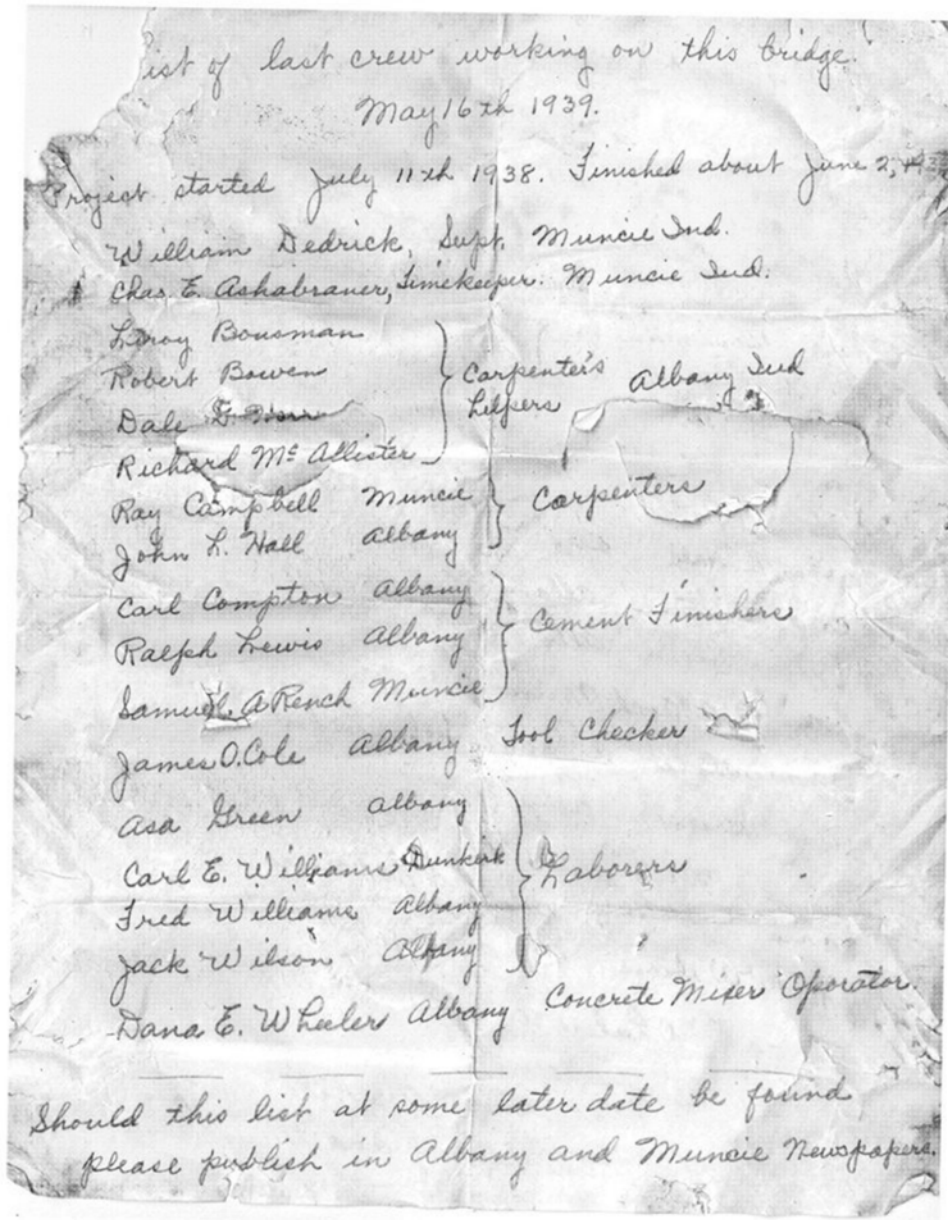 ist of last crew working on this bridge.
May 16th 1939.
Project started July 11th 1938. Finished about June 2,
William Dedrick, Supt. Muncie Ind.
Chas. E. Ashabraner, Timekeeper. Muncie Ind.
Leroy Bousman
Robert Bowen
Carpenter's helpers Albany Ind
Dale
Richard Mc Allister
Ray Campbell Muncie
Carpenters
John L. Hall Albany
Carl Compton Albany
Cement Finishers
Ralph Lewis Albany
Samuel A Rench Muncie
James O. Cole Albany Tool Checker
Asa Green Albany
Carl E. Williams Dunkirk
Laborers
Fred Williams Albany
Jack Wilson Albany
Dana E. Wheeler Albany Concrete Mixer Operator.
Should this list at some later date be found
please publish in Albany and Muncie Newspapers.